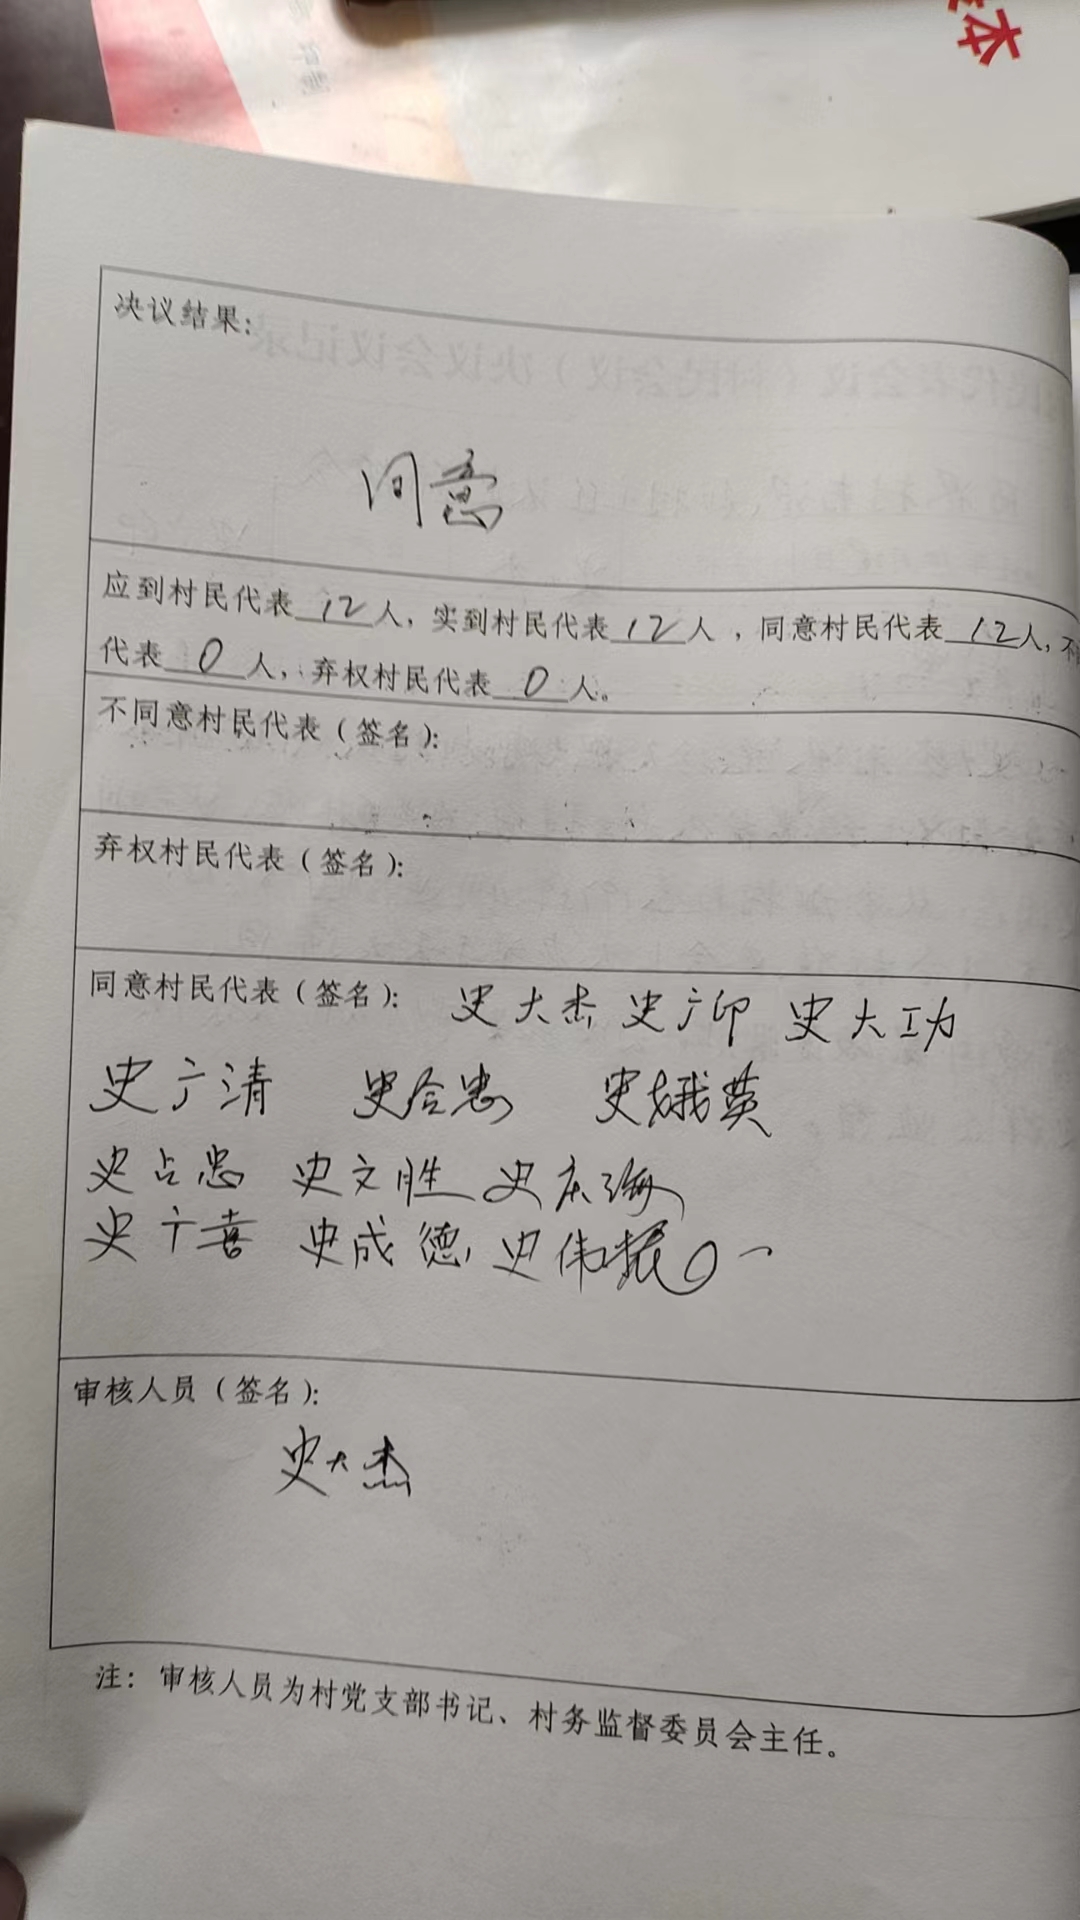 本
决议结果:
同意
应到村民代表 12 人, 实到村民代表 12 人 , 同意村民代表 12 人, 不
代表 0 人, 弃权村民代表 0 人。
不同意村民代表 ( 签名 ):
弃权村民代表 ( 签名 ):
同意村民代表 ( 签名 ): 史大杰 史广印 史大功
史广清 史合忠 史娥英
史占忠 史文胜 史庆海
史广喜 史成德 史伟振
审核人员 ( 签名 ):
史大杰
注: 审核人员为村党支部书记、村务监督委员会主任。